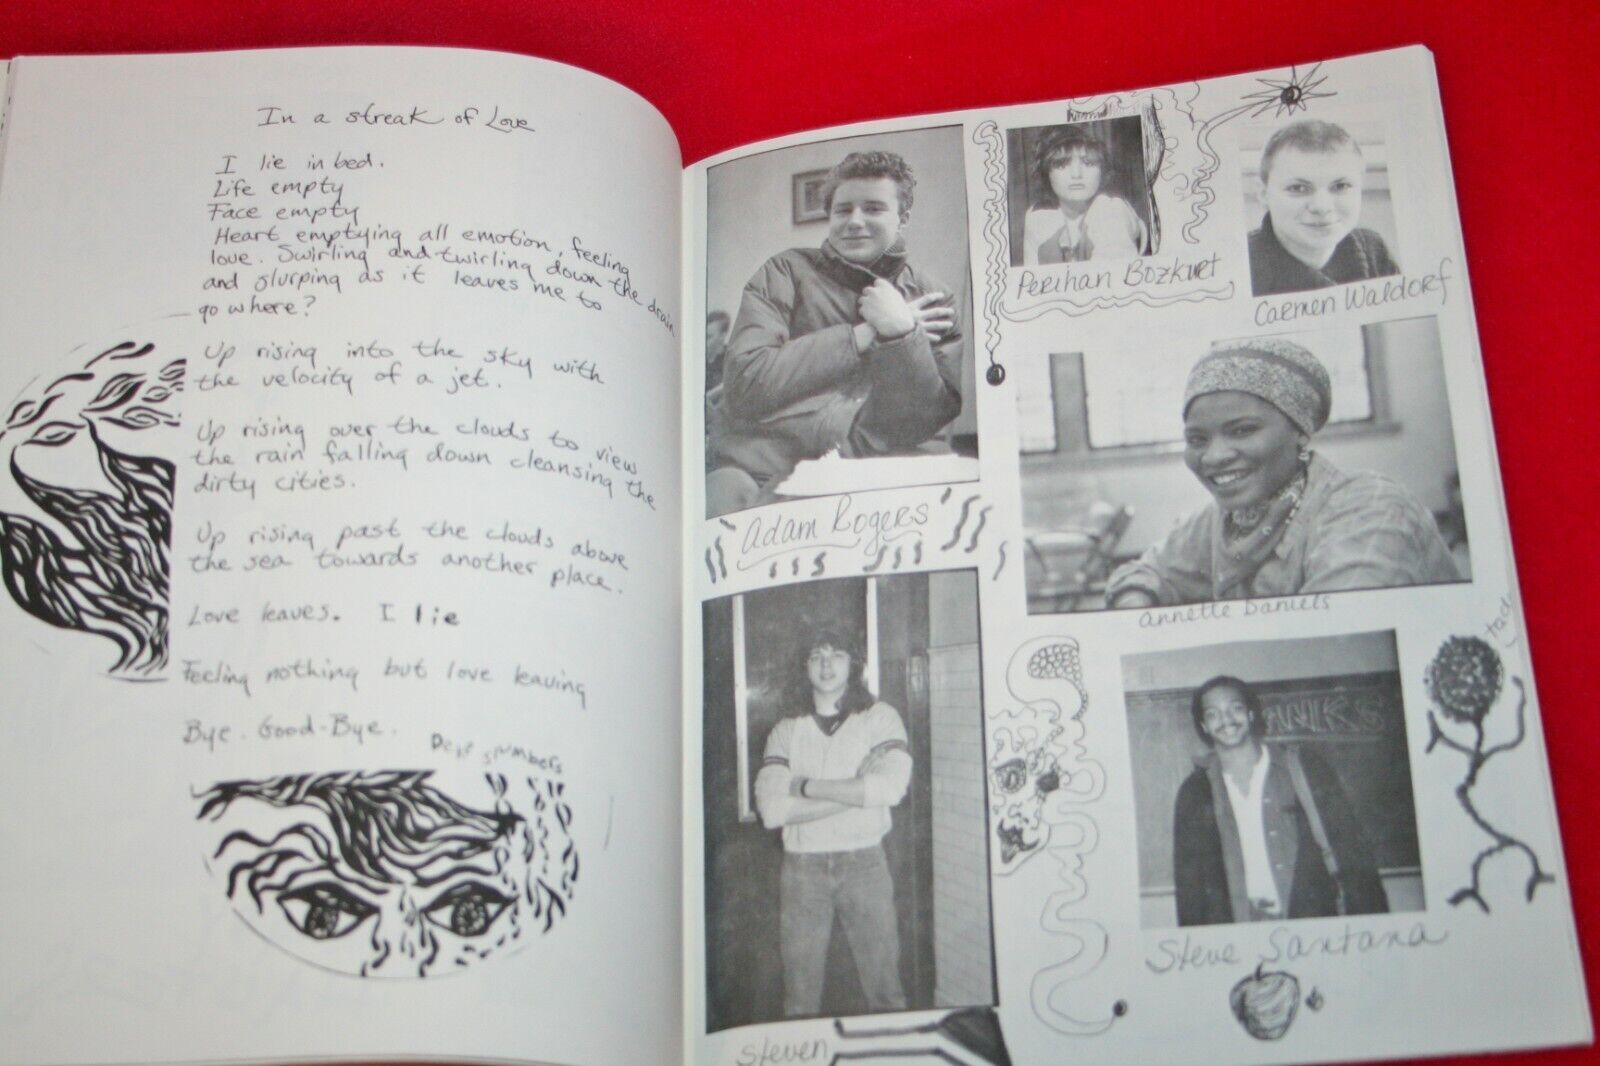 In a streak of Love
I lie in bed.
Life empty
Face empty
Heart emptying all emotion, feeling
love. Swirling and twirling down the drain
and slurping as it leaves me to
go where?
Up rising into the sky with
the velocity of a jet.
Up rising over the clouds to view
the rain falling down cleansing the
dirty cities.
Up rising past the clouds above
the sea towards another place.
Love leaves. I lie
Feeling nothing but love leaving
Bye. Good-Bye.
Adam Rogers
Steven
Perihan Bozkurt
Carmen Waldorf
Annette Daniels
Steve Santana